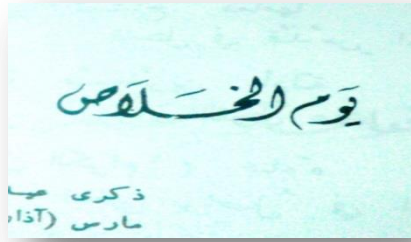 يَوم الخَلَاص
ذكرى
مارس (آذار